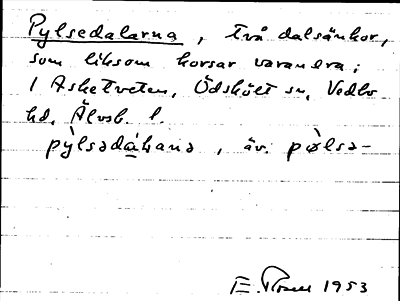 Pylsedalarna, två dalsänkor,
som liksom korsar varandra;
i Asketveten, Ödskölt sn, Vedbo
hd, Älvsb. l.
pỳlsədàḷana, äv. pø̀lsə-
E. 1953